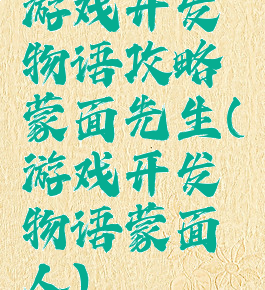 游戏开发
物语攻略
蒙面先生(
游戏开发
物语蒙面
人)